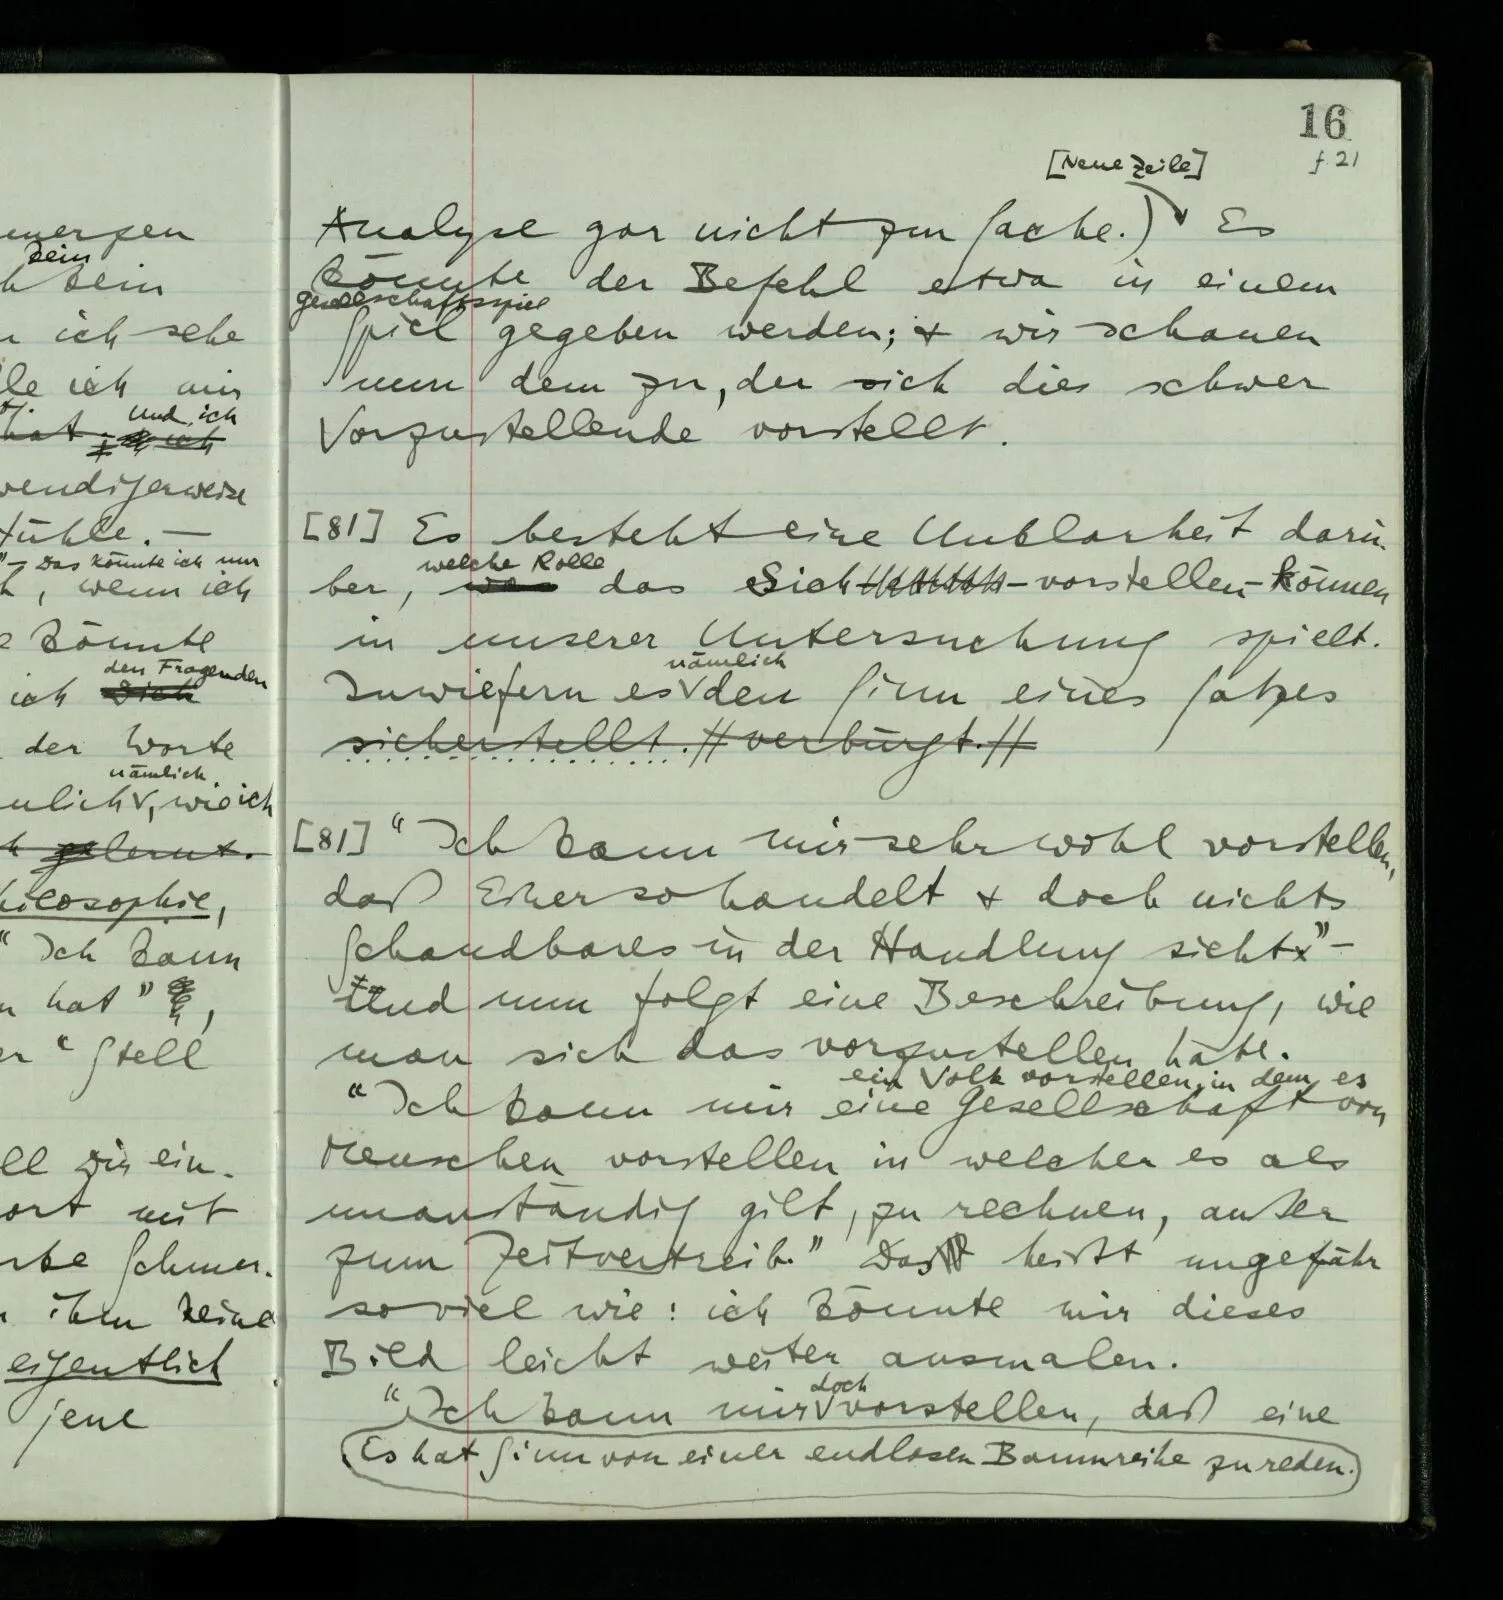 werfen
kein
kein
ich sehe
ich mir
und ich
hat ; ich
wendigerweise
fühle. —
" — Das könnte ich nur
, wenn ich
könnte
den Fragenden
ich sich
der Worte
nämlich
nlich v, wie ich
gelernt.
hilosophie,
" Ich kann
n hat",
er "Stell
ell dir ein-
ort mit
rke Schmer-
ihm keine
eigentlich
jene
16
f. 21
[Neue Zeile]
Analyse gar nicht zur Sache.) Es
könnte der Befehl etwa in einem
Gesellschaftsspiel
Spiel gegeben werden; & wir schauen
nun dem zu, der sich dies schwer
Vorzustellende vorstellt.
[81] Es besteht eine Unklarheit darü-
welche Rolle
ber, was das Sich-vorstellen-können
in unserer Untersuchung spielt.
nämlich
Inwiefern es v den Sinn eines Satzes
sicherstellt. // verbürgt. //
[81] "Ich kann mir sehr wohl vorstellen,
daß Einer so handelt & doch nichts
Schandbares in der Handlung sieht" —
Und nun folgt eine Beschreibung, wie
man sich das vorzustellen habe.
ein Volk vorstellen, in dem es
"Ich kann mir eine Gesellschaft von
Menschen vorstellen in welcher es als
unanständig gilt, zu rechnen, außer
zum Zeitvertreib." Das heißt ungefähr
soviel wie: ich könnte mir dieses
Bild leicht weiter ausmalen.
doch
"Ich kann mir v vorstellen, daß eine
Es hat Sinn von einer endlosen Baumreihe zu reden.